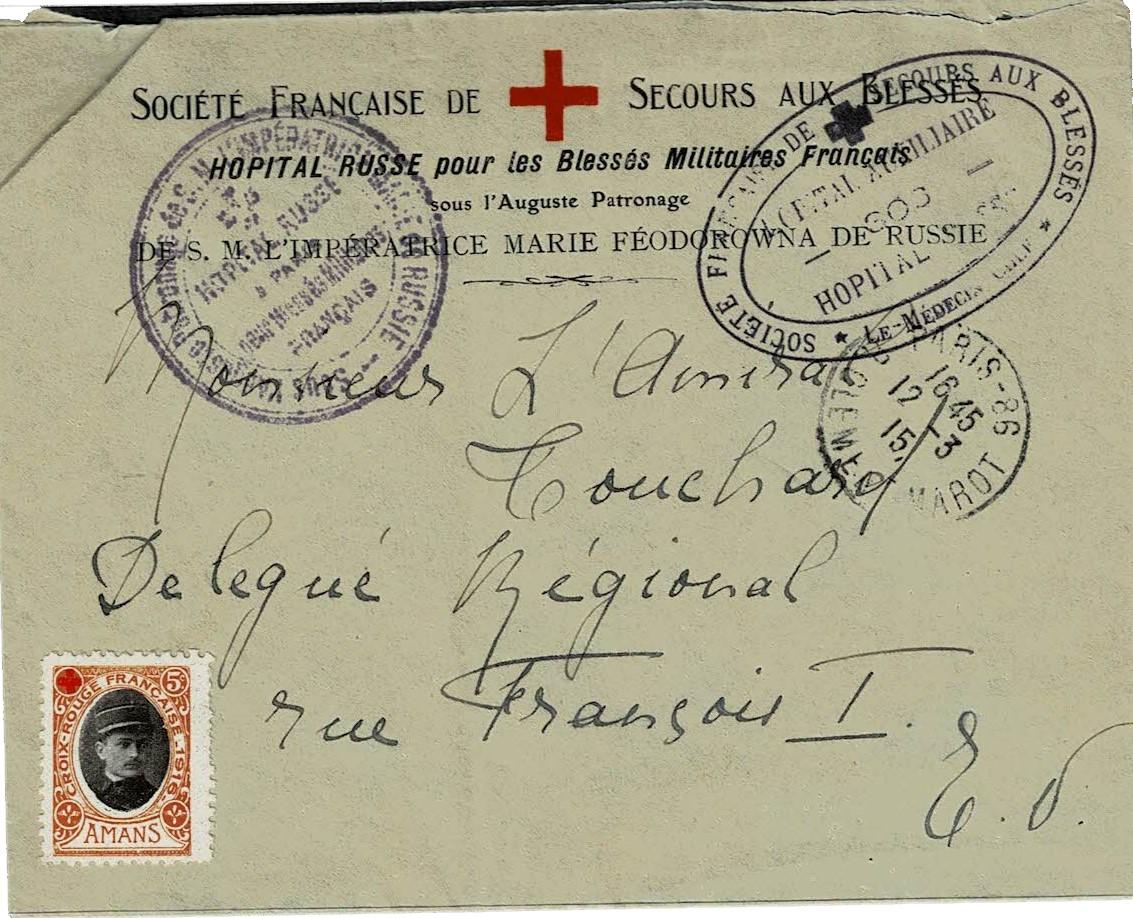 SOCIÉTÉ FRANÇAISE DE SECOURS AUX BLESSÉS
HOPITAL RUSSE pour les Blessés Militaires Français
sous l'Auguste Patronage
DE S. M. L'IMPÉRATRICE MARIE FÉODOROWNA DE RUSSIE
HOPITAL RUSSE
à PARIS
FRANÇAIS
SOCIÉTÉ FRANÇAISE DE SECOURS AUX BLESSÉS
HOPITAL AUXILIAIRE
HOPITAL
LE MÉDECIN CHEF
PARIS-86
16 45
12 - 3
15
MAROT
Monsieur L'Amiral
Touchard
Delegué Régional
rue François I.
E. V.
CROIX-ROUGE FRANÇAISE -1916-
5c
AMANS